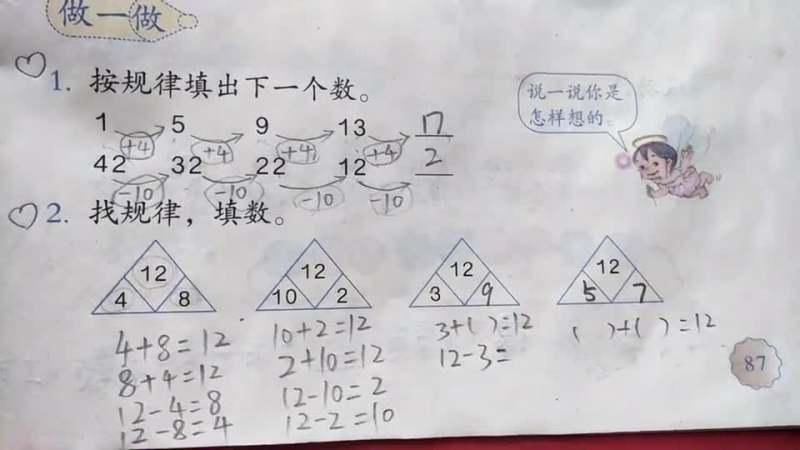 做一做
1. 按规律填出下一个数。
说一说你是
怎样想的。
1 5 9 13 17
+4 +4 +4 +4
42 32 22 12 2
-10 -10 -10 -10
2. 找规律，填数。
12 12 12 12
4 8 10 2 3 9 5 7
4+8=12 10+2=12 3+( )=12 ( )+( )=12
8+4=12 2+10=12 12-3=
12-4=8 12-10=2
12-8=4 12-2=10
87